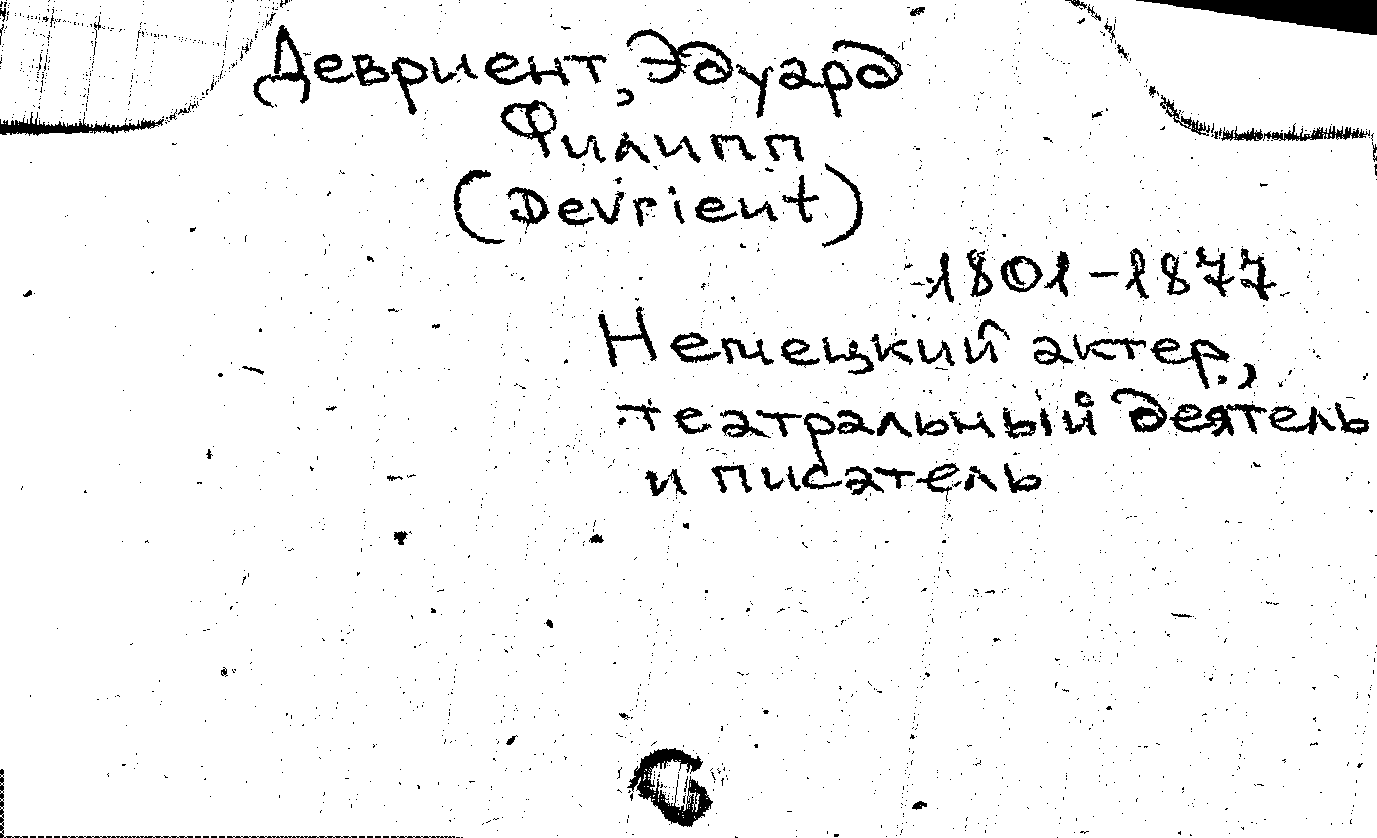 Девриент, Эдуард
Филипп
(Devrient)
1801-1877
Немецкий актер,
театральный деятель
и писатель